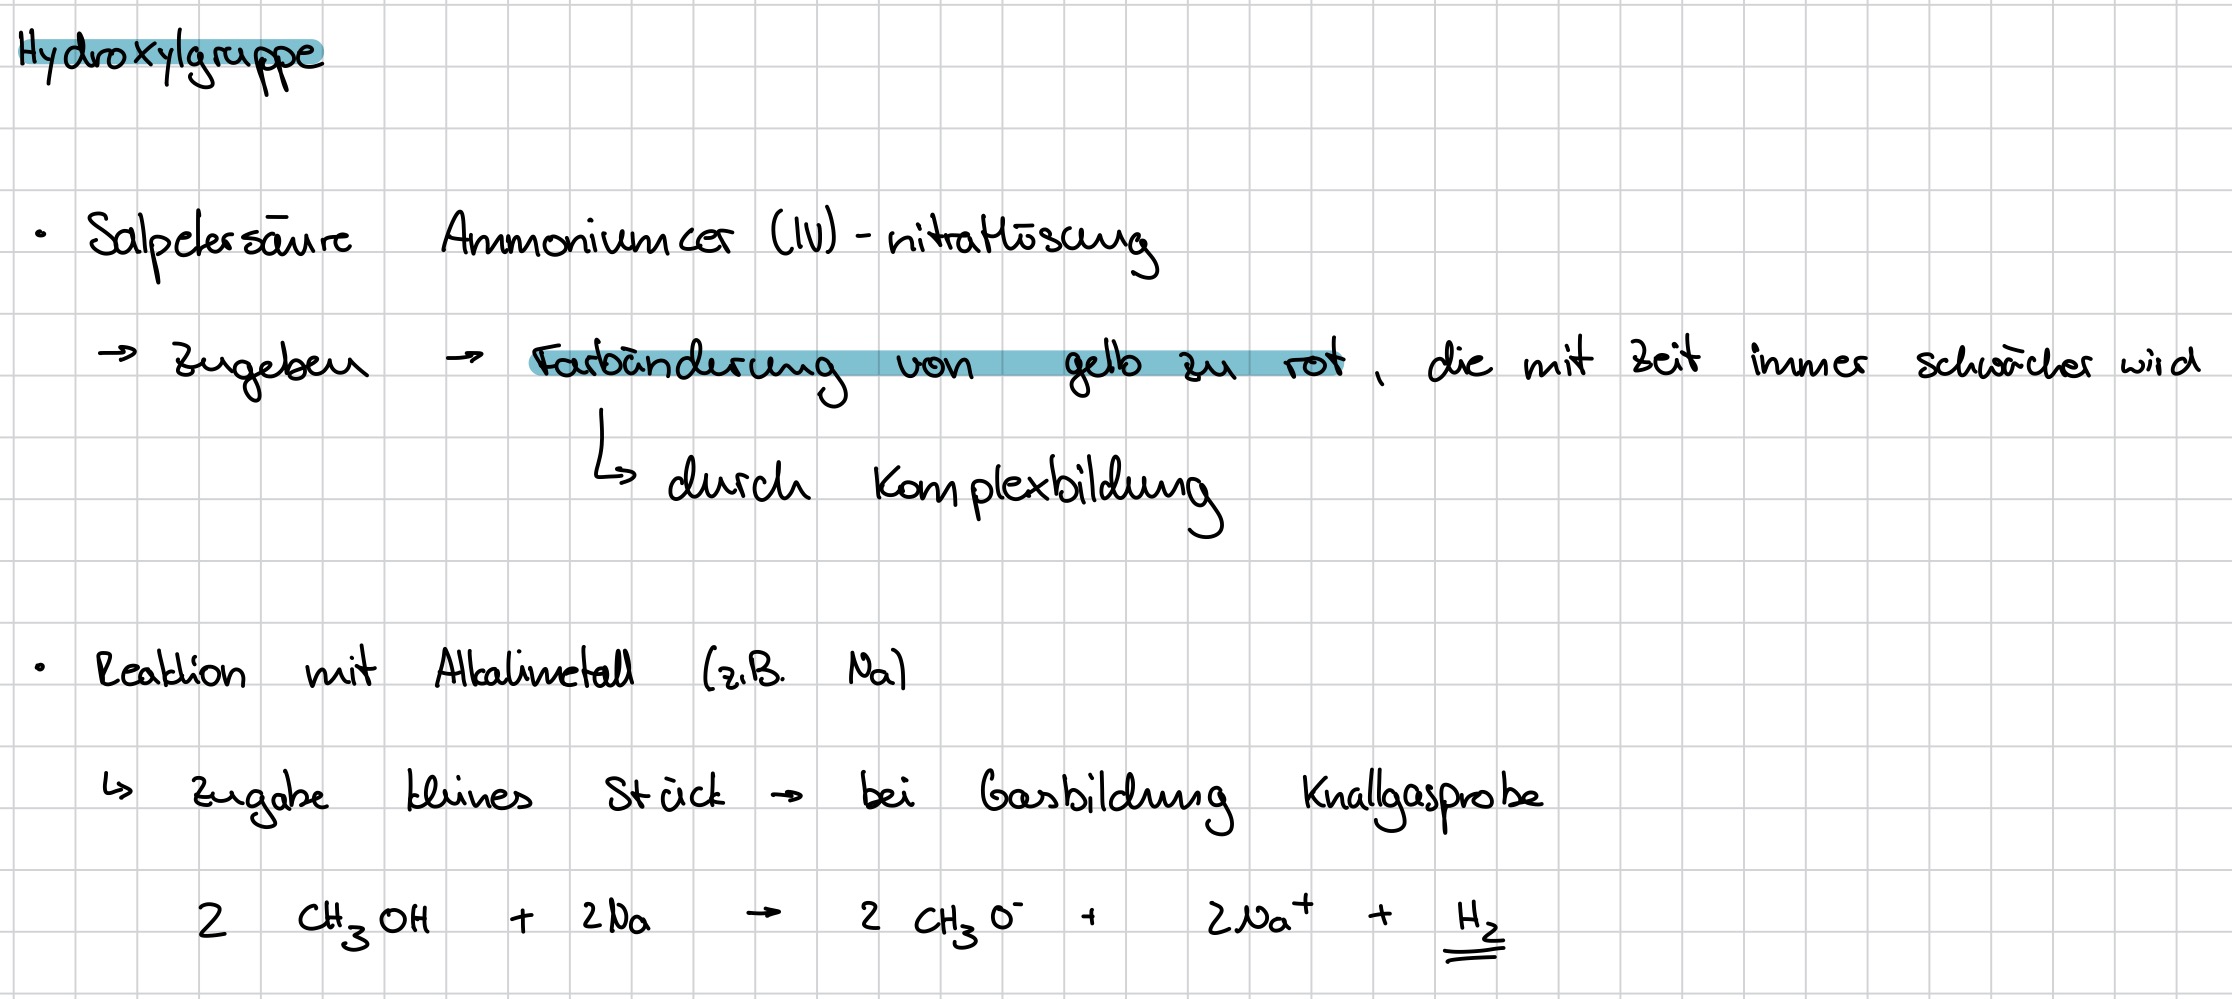 Hydroxylgruppe
• Salpetersäure Ammoniumcer (IV) - nitratlösung
→ zugeben → Farbänderung von gelb zu rot, die mit Zeit immer schwächer wird
↳ durch Komplexbildung
• Reaktion mit Alkalimetall (z.B. Na)
↳ Zugabe kleines Stück → bei Gasbildung Knallgasprobe
2 CH₃OH + 2Na → 2 CH₃O⁻ + 2Na⁺ + H₂